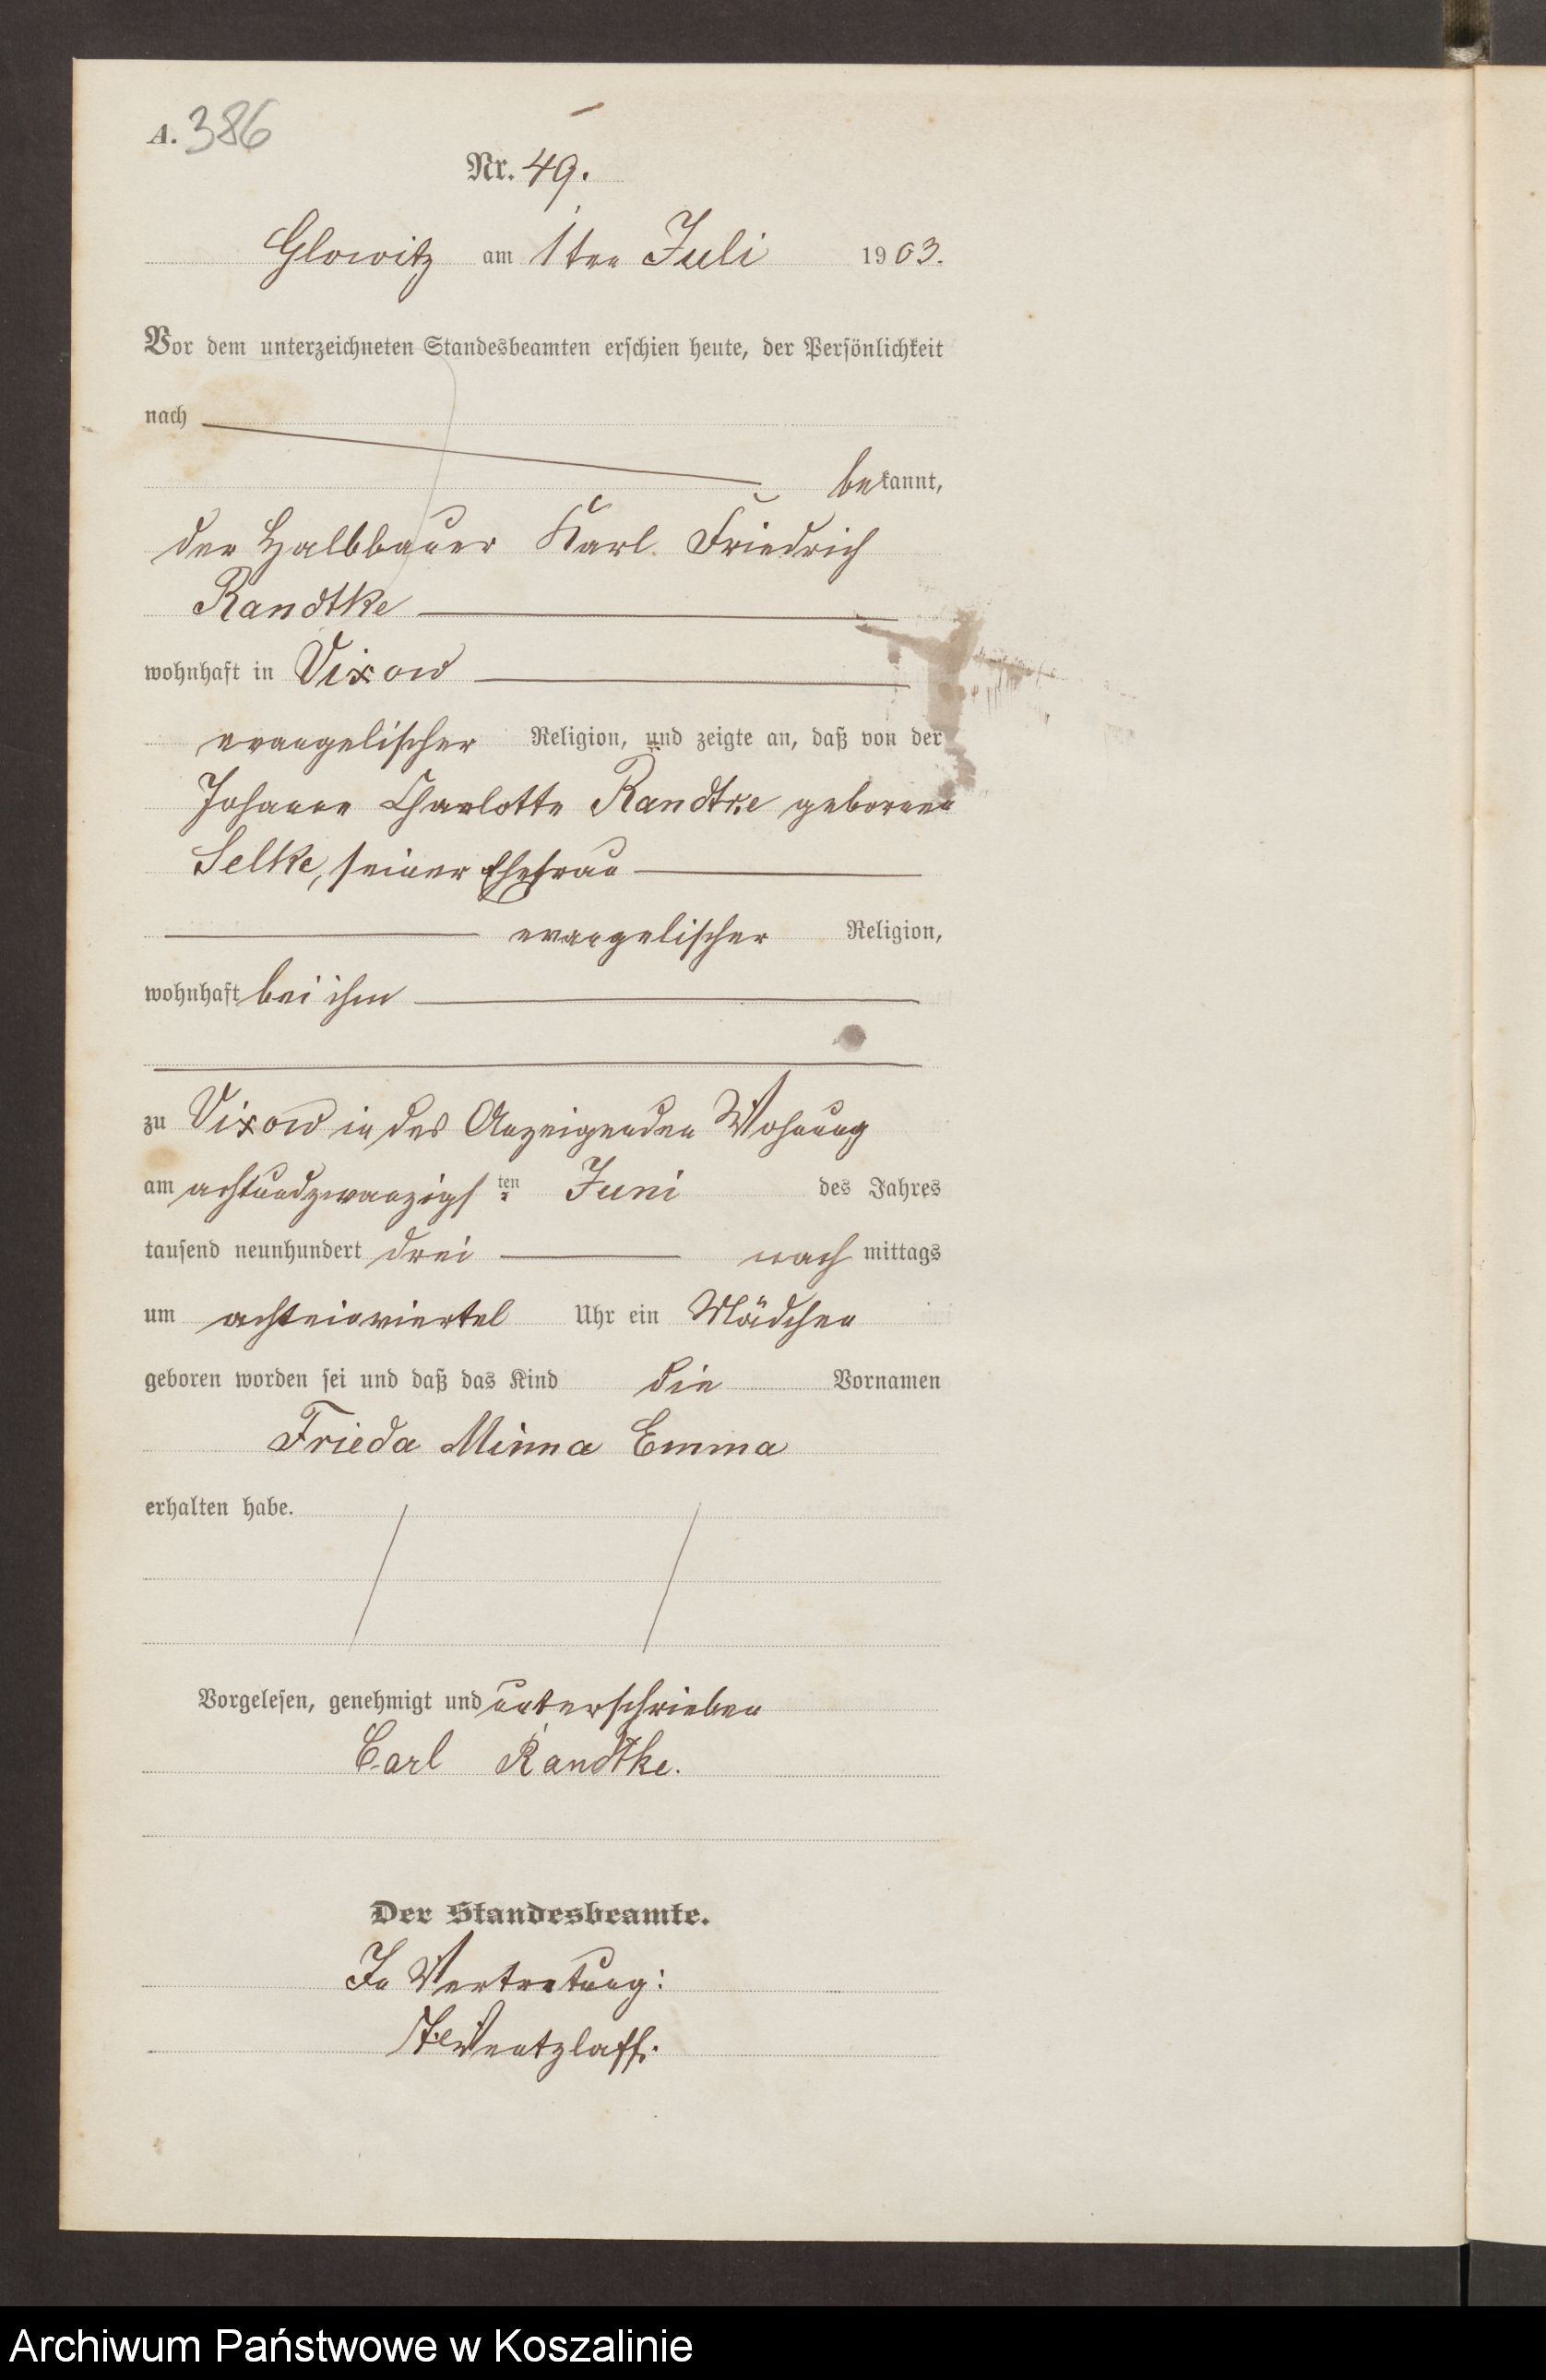 A. 386
Nr. 49.
Glowitz am 1ten Juli 1903.
Vor dem unterzeichneten Standesbeamten erschien heute, der Persönlichkeit
nach
bekannt,
der Halbbauer Karl Friedrich
Randtke
wohnhaft in Vixow
evangelischer Religion, und zeigte an, daß von der
Johanne Charlotte Randtke geborenen
Selke, seiner Ehefrau
evangelischer Religion,
wohnhaft bei ihm
zu Vixow in des Anzeigenden Wohnung
am achtundzwanzigsten Juni des Jahres
tausend neunhundert drei nachmittags
um achteinviertel Uhr ein Mädchen
geboren worden sei und daß das Kind die Vornamen
Frieda Minna Emma
erhalten habe.
Vorgelesen, genehmigt und unterschrieben
Carl Randtke.
Der Standesbeamte.
In Vertretung:
Wentzlaff.
Archiwum Państwowe w Koszalinie